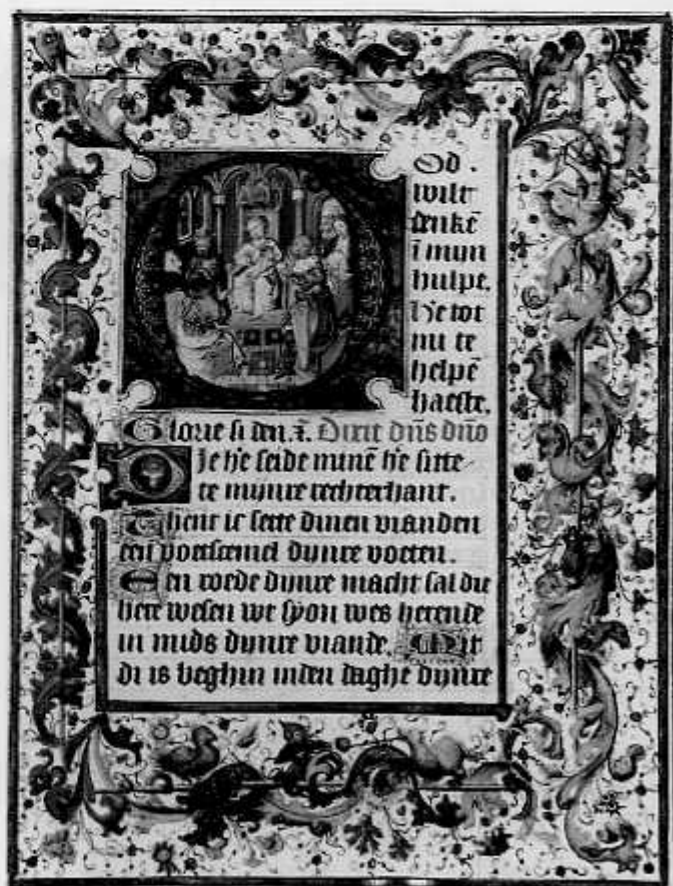 God
wilt
denkē
ī mijn
hulpe.
h'e tot
mi te
helpē
haeste.
Glorie si den. Dixit dn̄s dn̄o
De h'e seide minē h'e sitte
te mijnre rechterhant.
Thent ic sette dinen vianden
een voetscemel dijnre voeten.
Een roede dijnre macht sal die
here wesen wt syon wes herende
in mids dijnre viande. Mit
di is beghin inden daghe dijnre